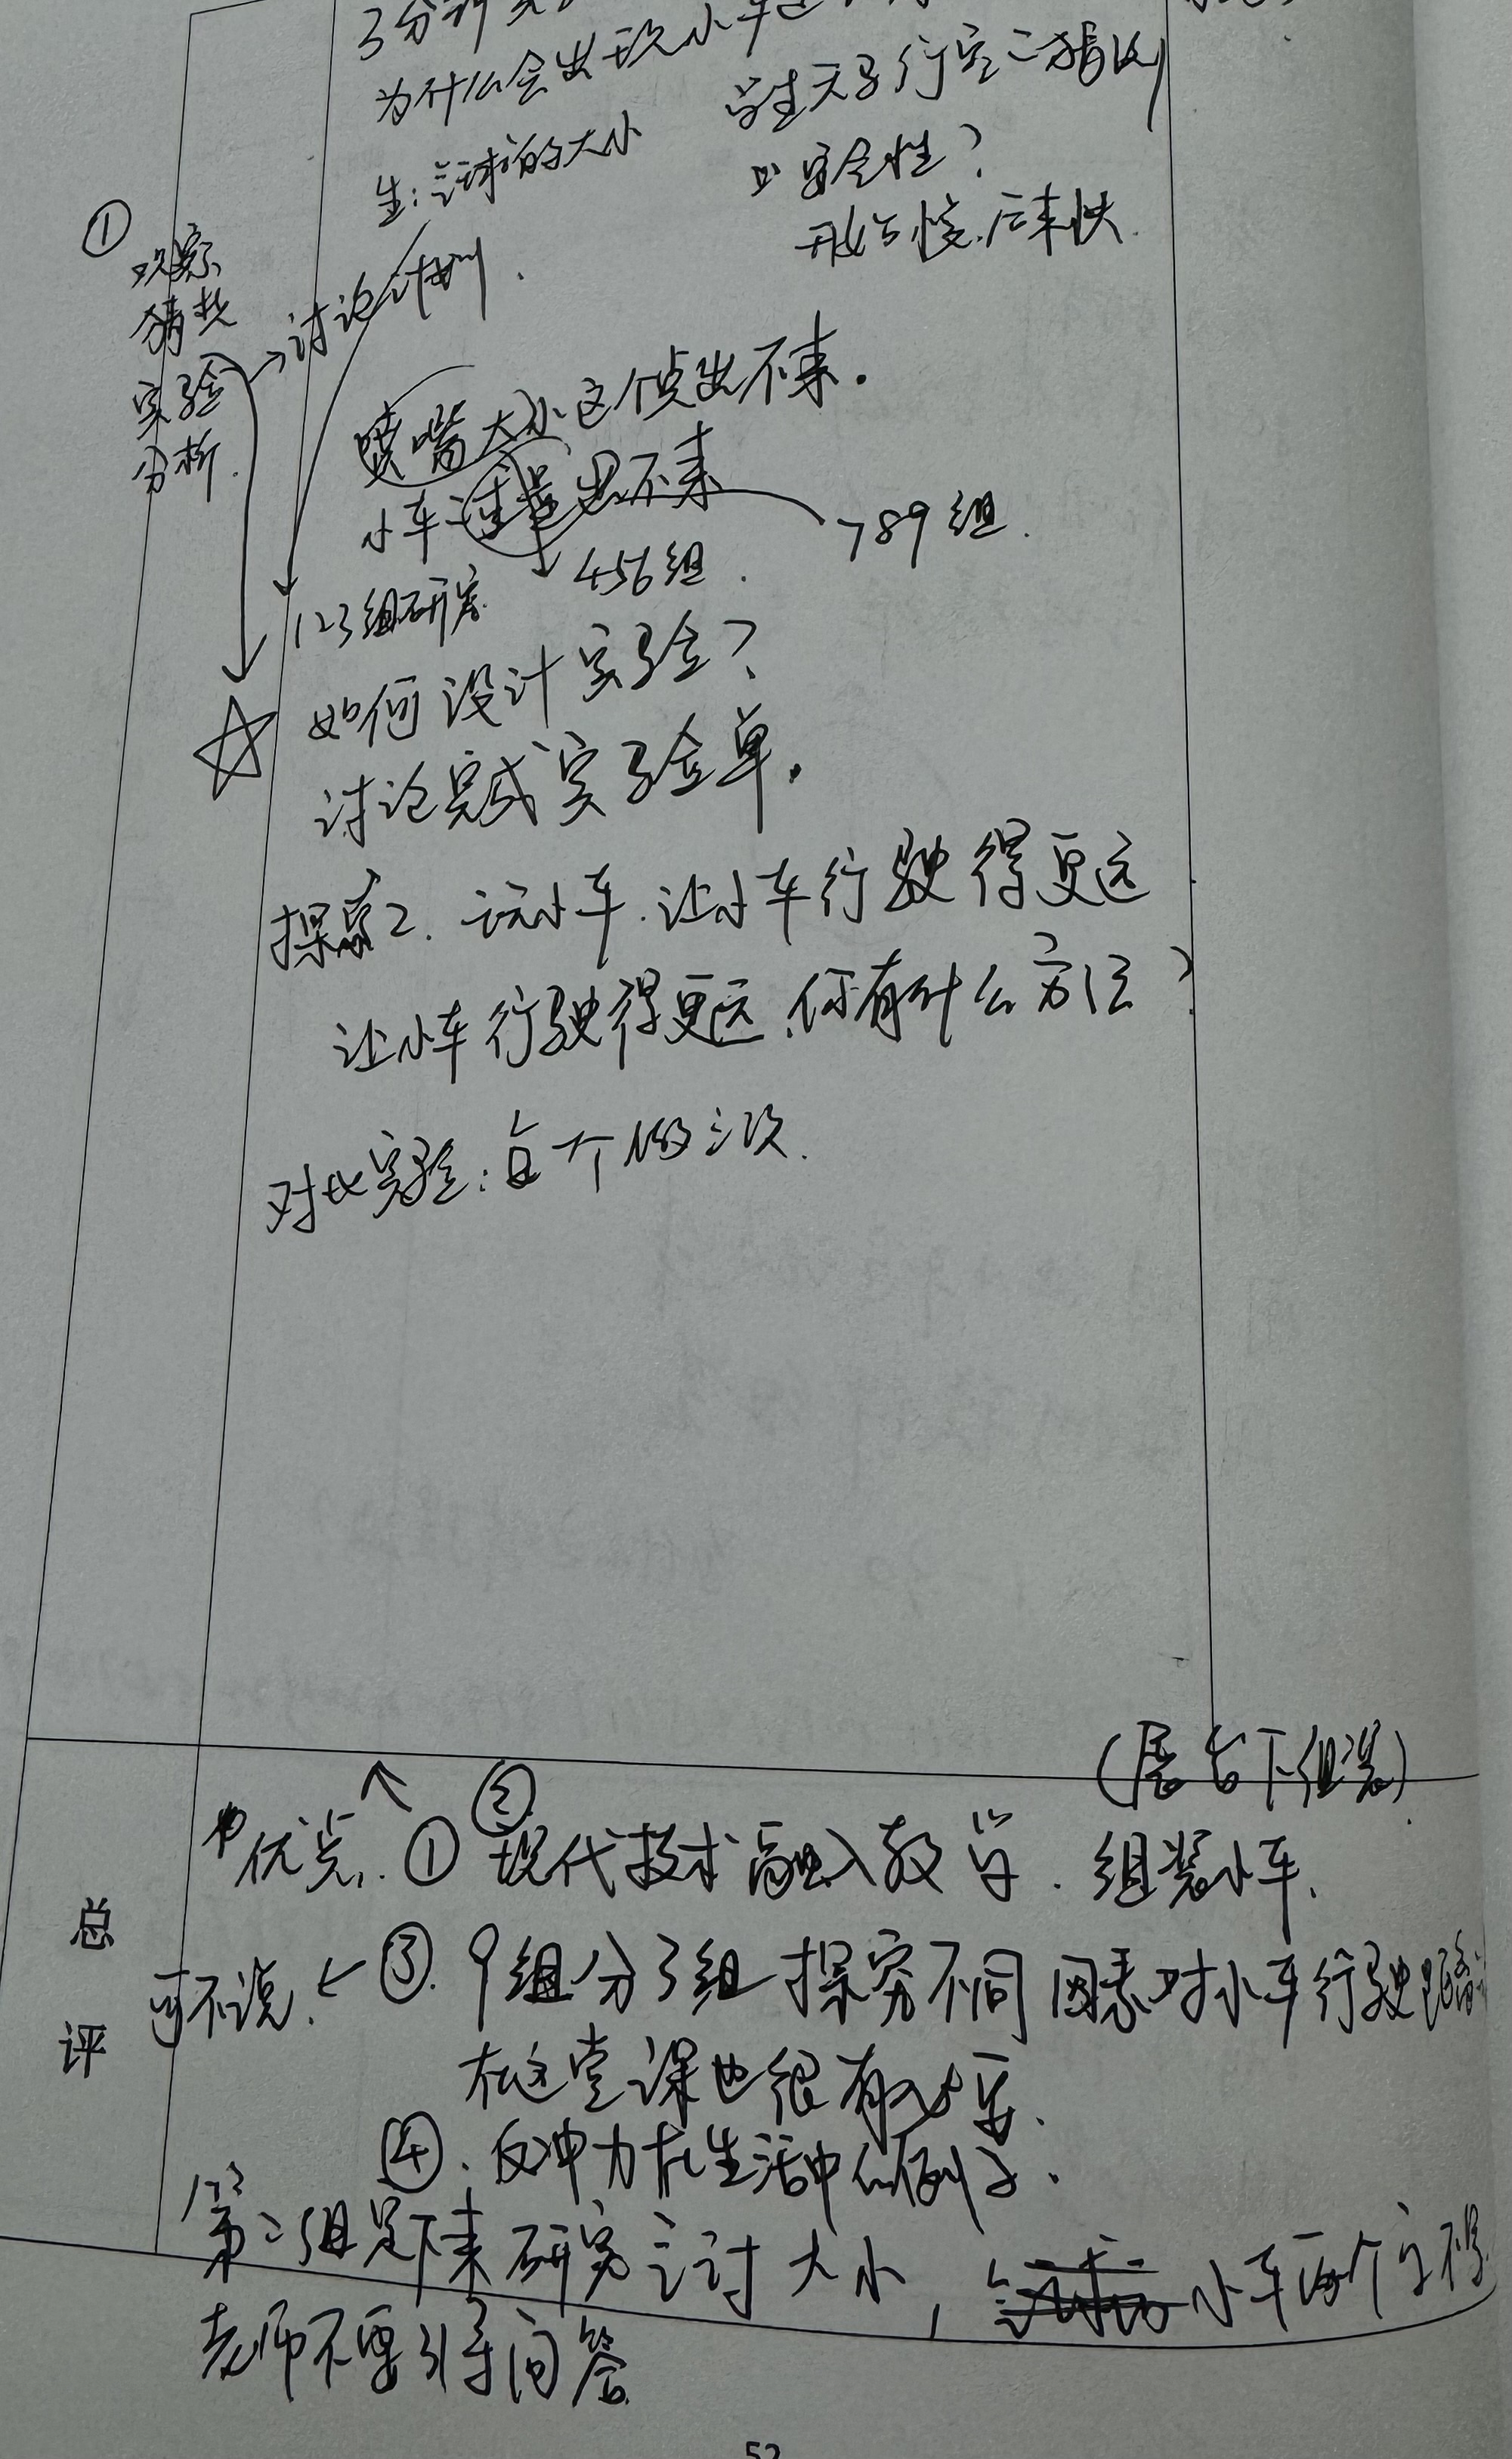 3分钟
为什么会出现小车
生:气球的大小
学生天马行空
安全性?
开始慢.后来快.
①
观察
猜想
实验→讨论计划.
分析.
喷嘴大小这个点出不来.
小车重量出不来
789组.
456组.
123组研究.
☆如何设计实验?
讨论完成实验单.
探究2.玩小车.让小车行驶得更远
让小车行驶得更远.你有什么方法?
对比实验:每个做三次.
(展台下组装)
总评
优点.①②现代技术融入教学.组装小车.
可不说.←③.9组分3组探究不同因素对小车行驶
在这堂课也很有必要.
④.反冲力在生活中的例子.
第二组是下来研究 大小,小车
老师不要引导问答
52